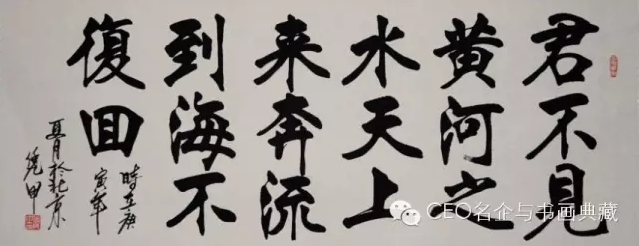 君不見
黄河之
水天上
来奔流
到海不
復回
時在庚
寅年
夏月於北京
CEO名企与书画典藏